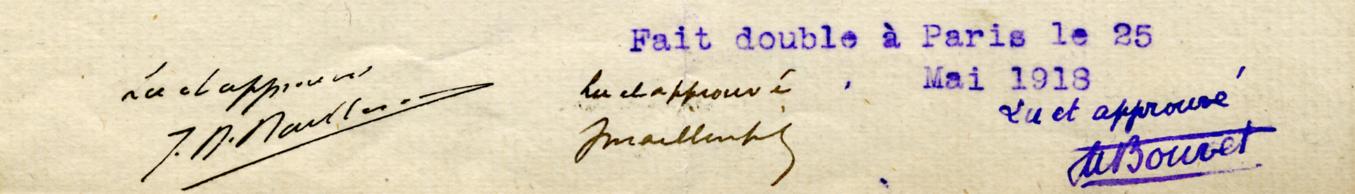 Fait double à Paris le 25
Mai 1918
Lu et approuvé
Lu et approuvé
Lu et approuvé
Bouvet